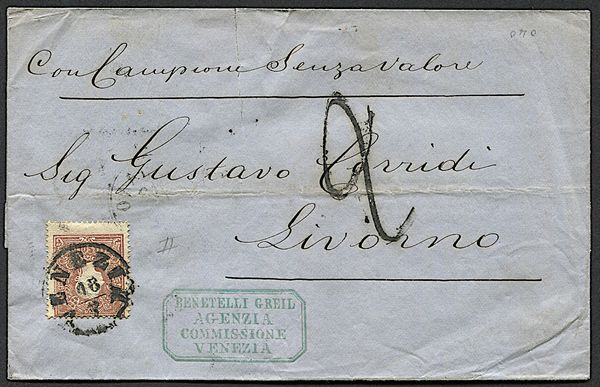 Con Campione Senza Valore
Sig Gustavo Corridi
Livorno
2
II
VENEZIA
18
BENETELLI GREIL
AGENZIA
COMMISSIONE
VENEZIA